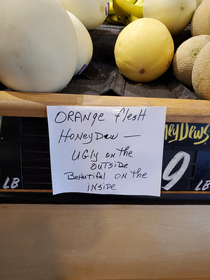 ORANGE flesH
HoneyDew —
UGly on the
OUTSIDE
BeautiFul on the
INSIDE
neyDews
9
LB
LB